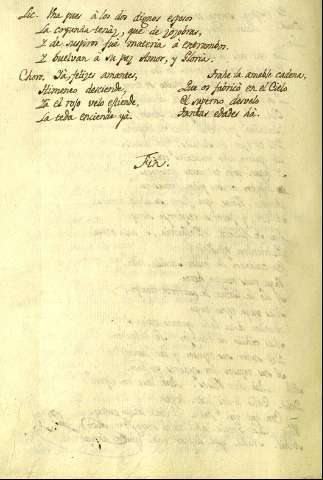 Lic. Una pues à los dos dignos esposos
La coyunda tenàz, que de zozobras,
I de suspiros fuè materia à entrambos.
I buelvan à su paz Amor, y Gloria.
Chor. Ià, felizes amantes,
Himeneo desciende,
Ià el rojo velo estiende,
La teda enciende yà.
Trahe la amable cadena,
Que os fabricò en el Cielo
El superno desvelo
Tantas edades hà.
Fin.